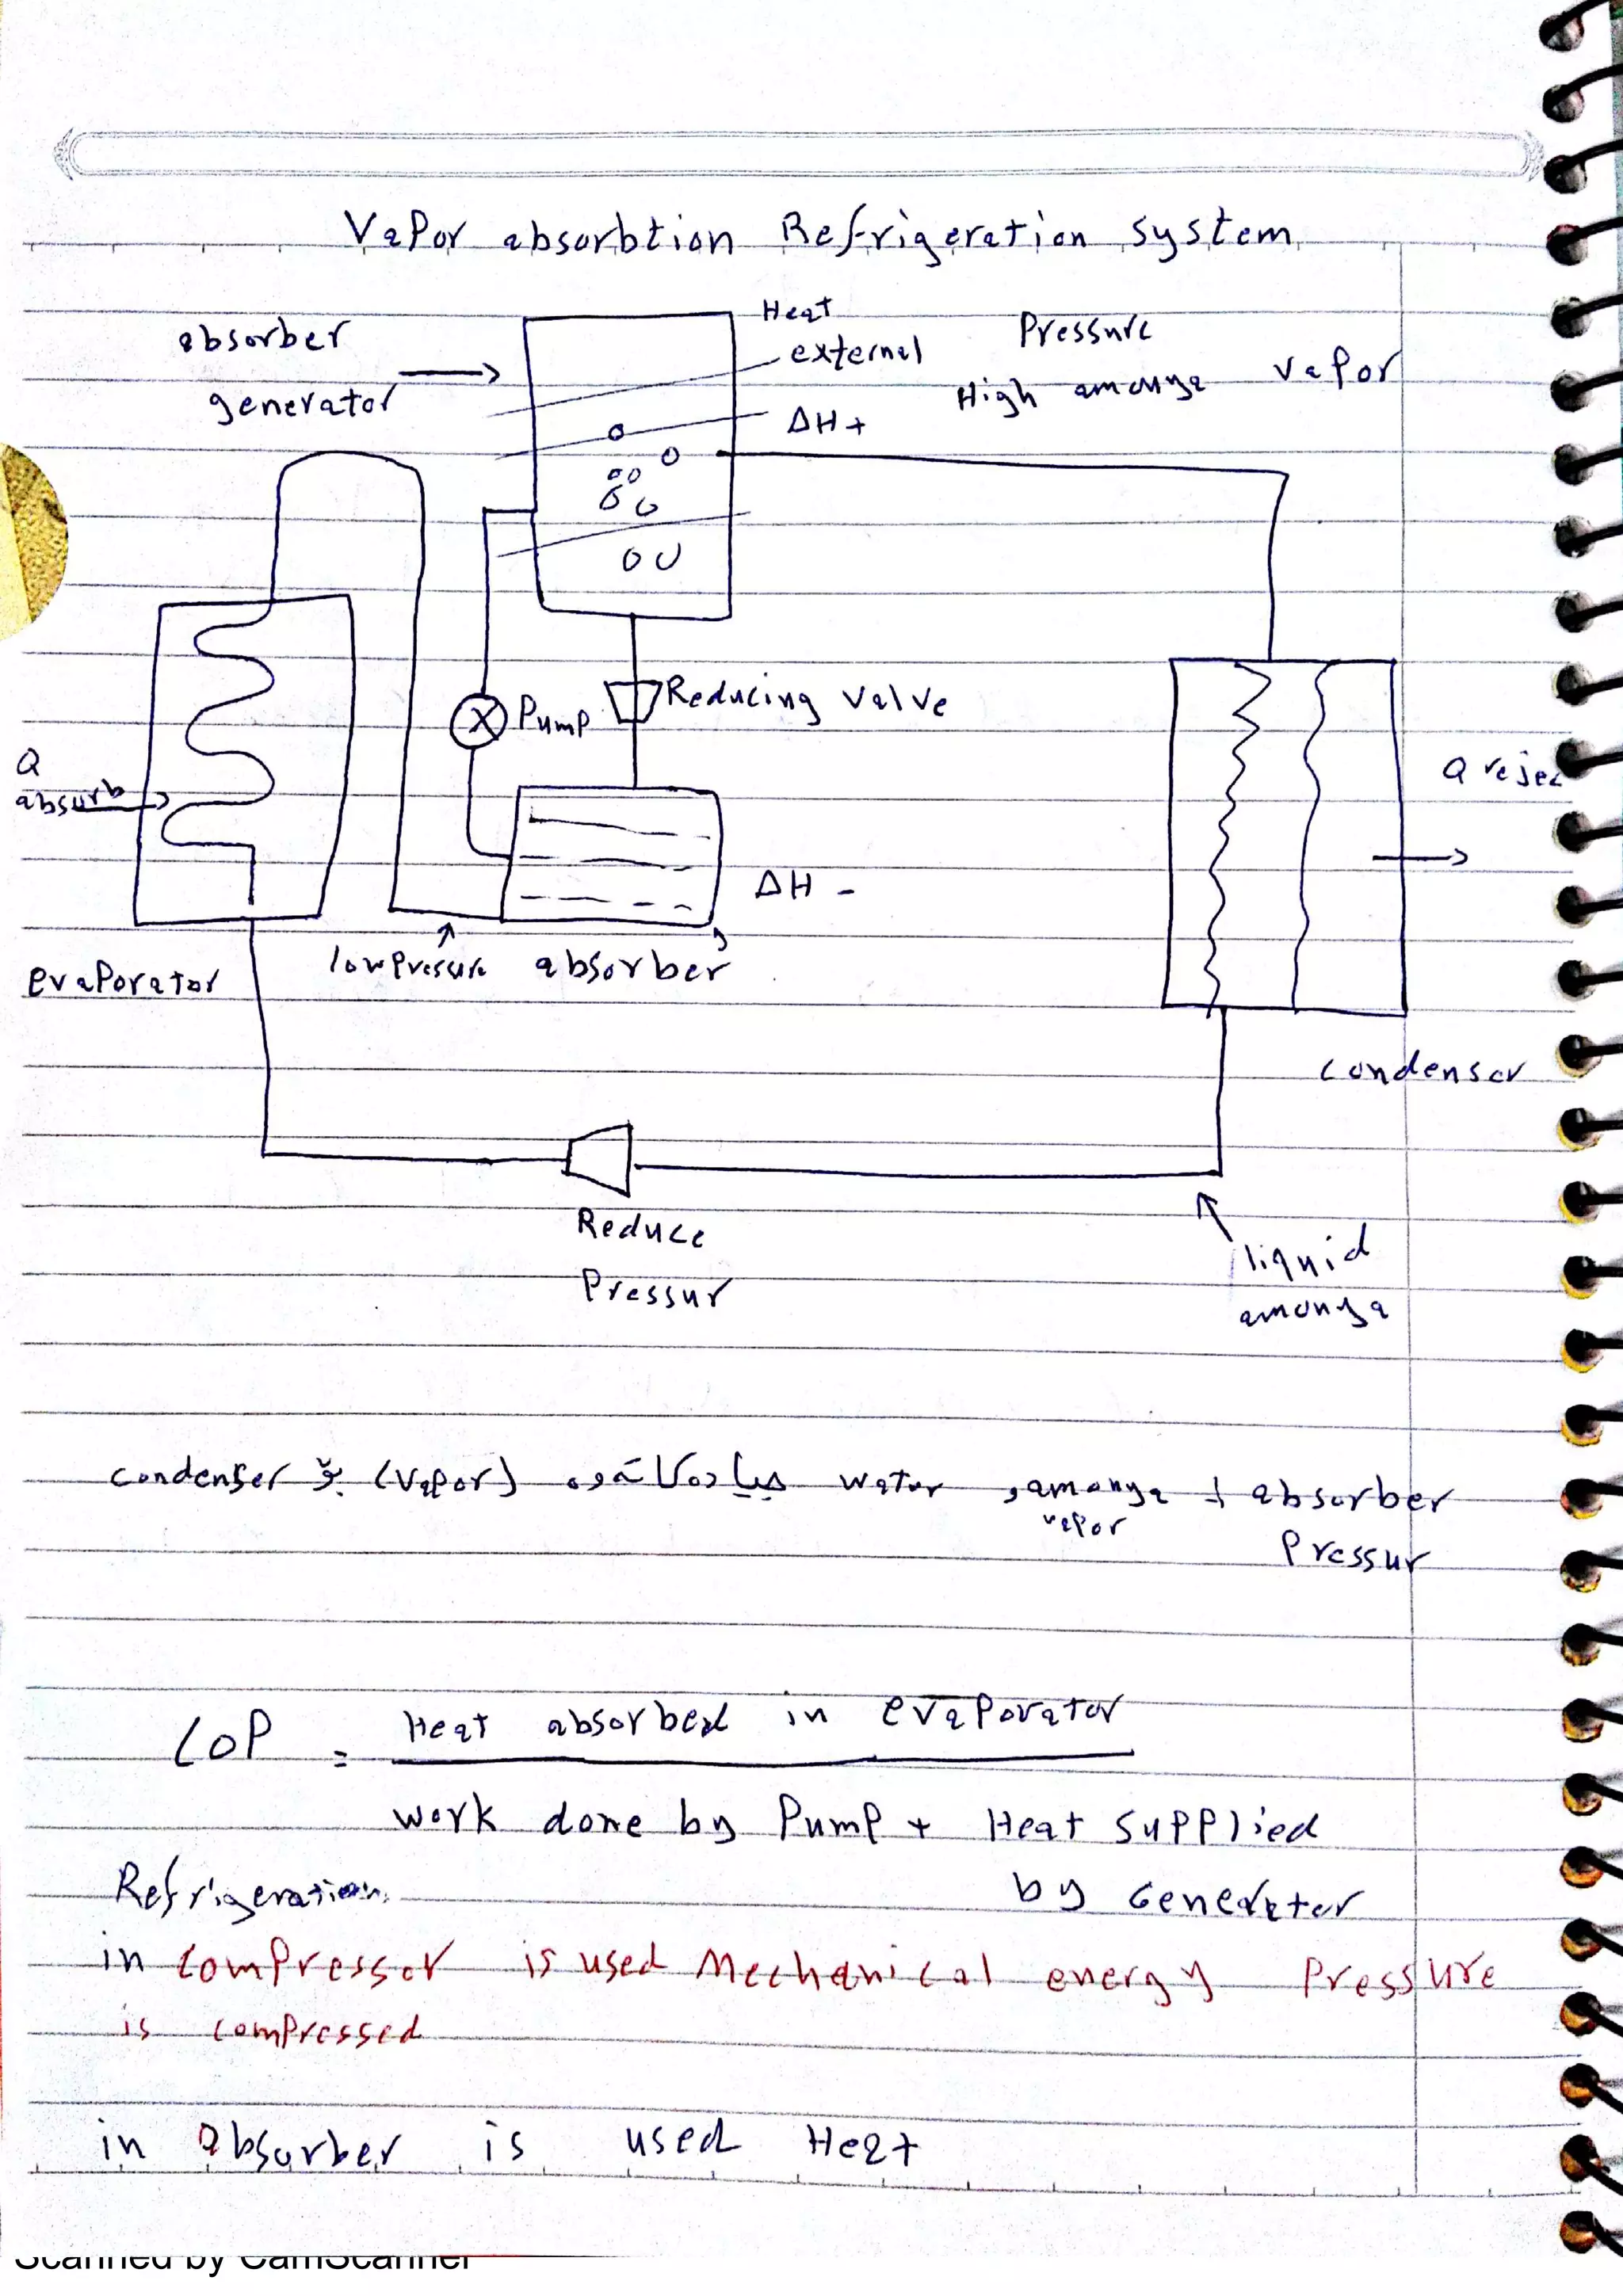 Vapor absorbtion Refrigeration system
absorber
generator
Heat
external
ΔH +
Pressure
High amonya vapor
Pump
Reducing valve
Q
absurb
Q rejec
ΔH -
low pressure
absorber
evaporator
condenser
Reduce
Pressur
liquid
amonya
absorber د amonya و water جیادەکاتەوە (Vapor) بۆ condenser
vapor
Pressur
COP = Heat absorbed in evaporator
work done by Pump + Heat supplied
by Generator
Refrigeration
in compressor is used Mechanical energy Pressure
is compressed
in absorber is used Heat
Scanned by CamScanner